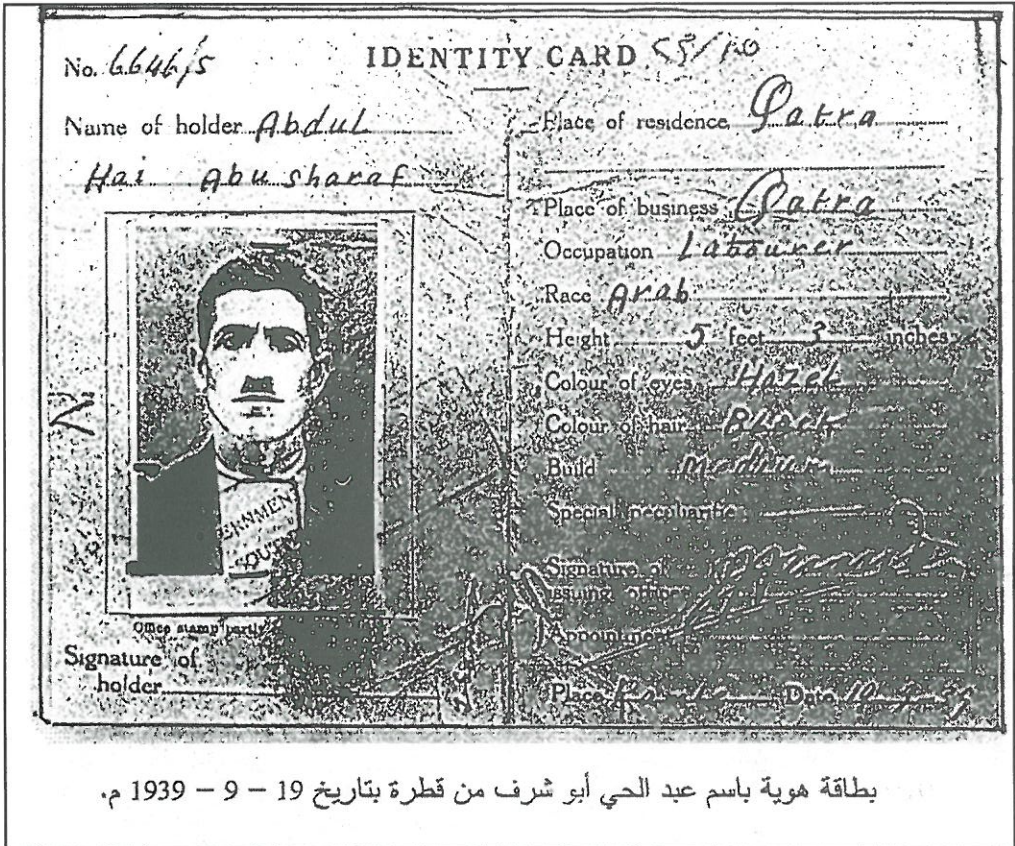 IDENTITY CARD
No. 6646/5
Name of holder Abdul
Hai Abusharaf
ERNMEN
Office stamp partly
Signature of
holder
Place of residence Qatra
Place of business Qatra
Occupation Labourer
Race Arab
Height 5 feet 3 inches
Colour of eyes Hazel
Colour of hair Black
Build medium
Special peculiarities
Signature of
issuing officer
Appointment
Place Date
بطاقة هوية باسم عبد الحي أبو شرف من قطرة بتاريخ 19 – 9 – 1939 م.